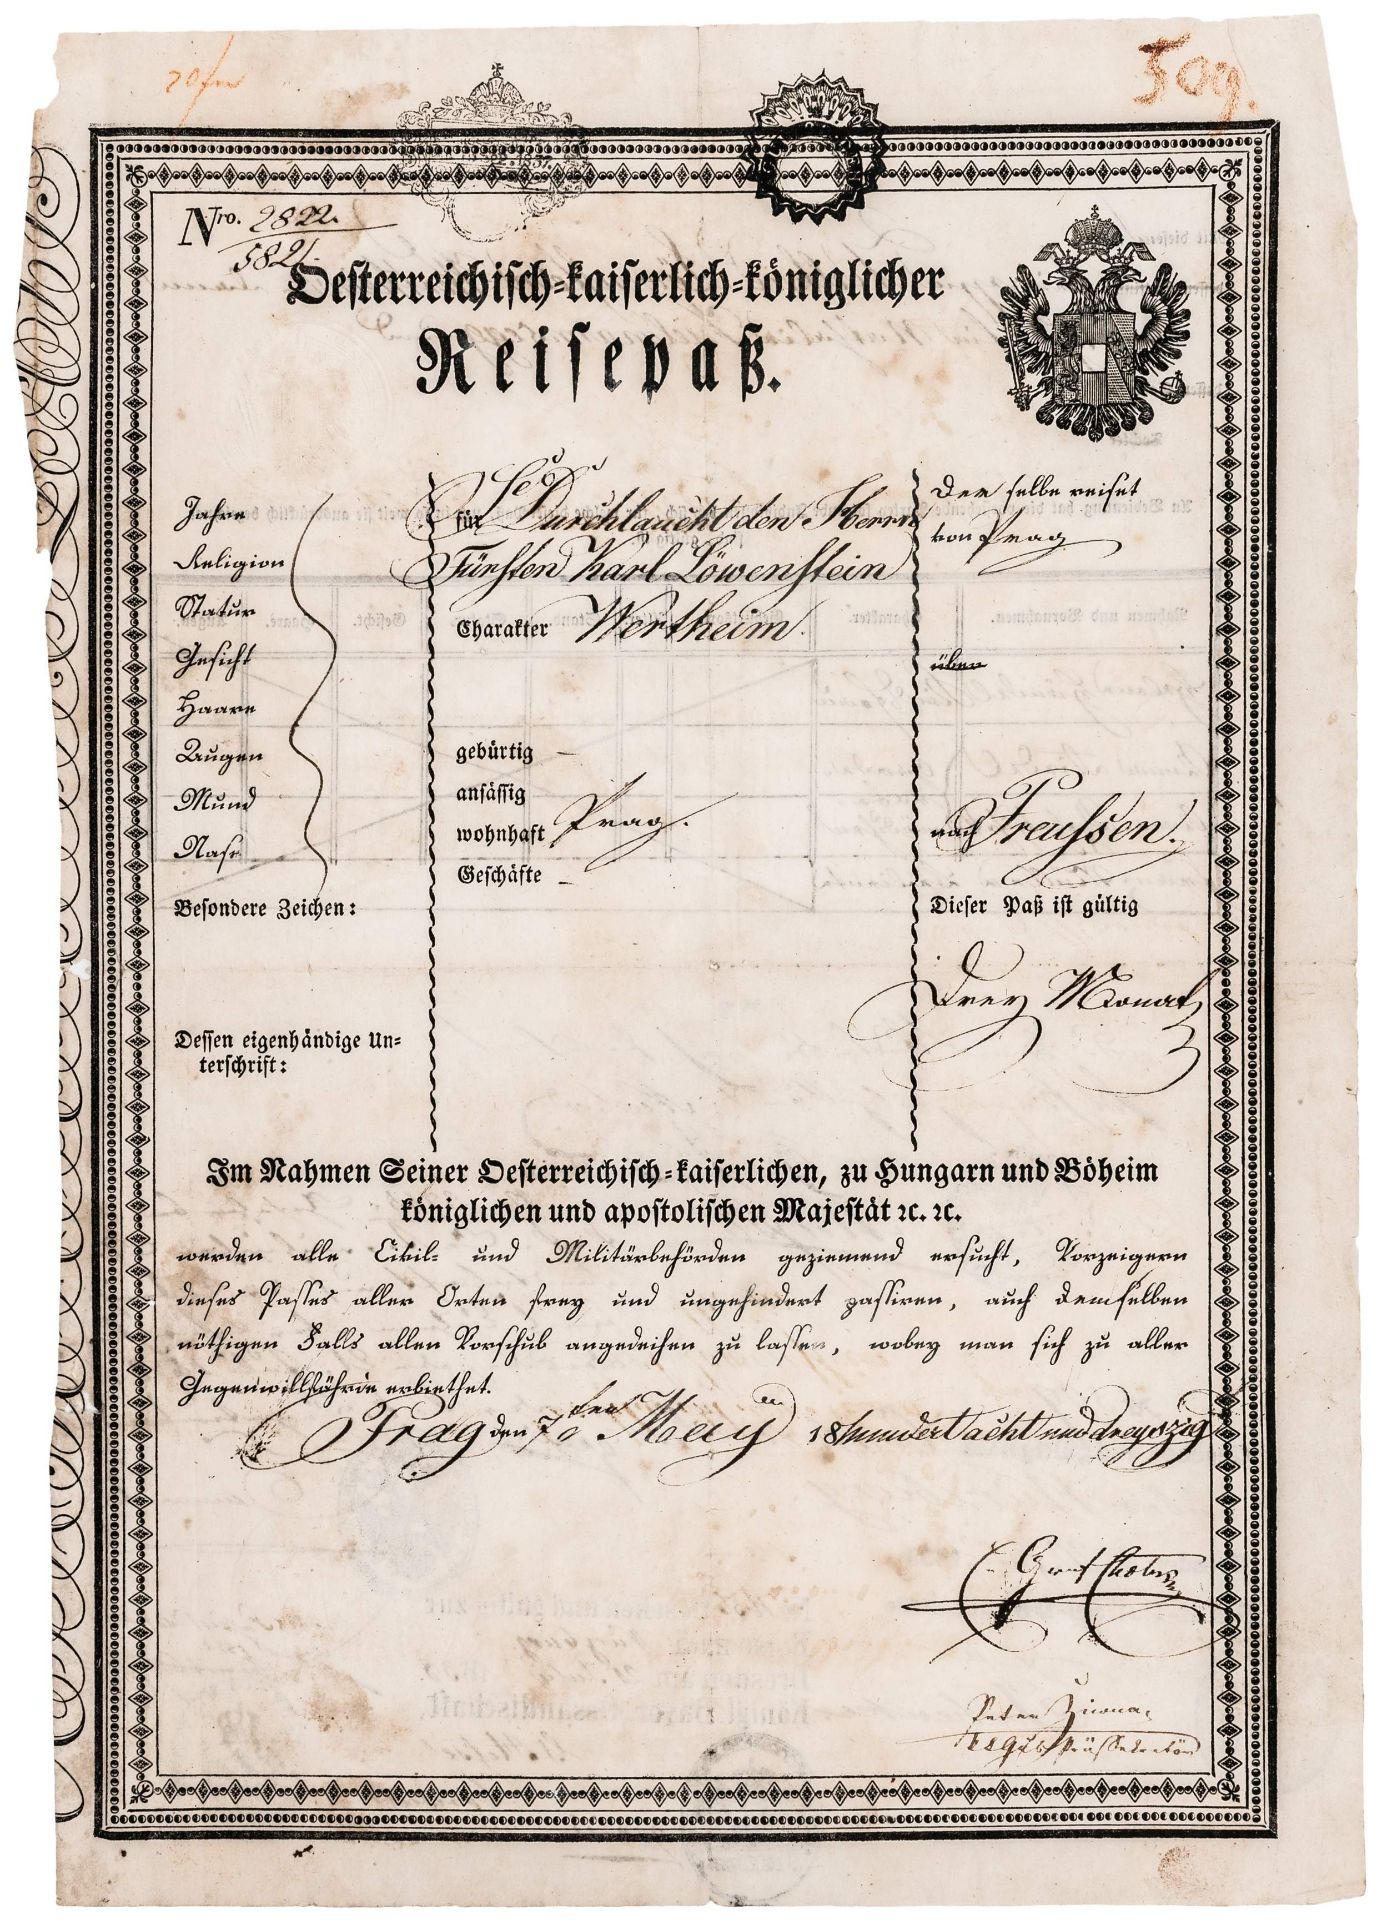 Nro. 2822.
5821.
Oesterreichisch-kaiserlich-königlicher
Reisepaß.
Jahre
Religion
Statur
Gesicht
Haare
Augen
Mund
Nase
Besondere Zeichen:
Dessen eigenhändige Un-
terschrift:
für Se Durchlaucht den Herrn
Fürsten Karl Löwenstein
Charakter Wertheim.
gebürtig –
ansässig
wohnhaft Prag.
Geschäfte –
Der selbe reiset
von Prag
über
nach Preussen.
Dieser Paß ist gültig
Drey Monat
Im Nahmen Seiner Oesterreichisch-kaiserlichen, zu Hungarn und Böheim
königlichen und apostolischen Majestät ꝛc. ꝛc.
werden alle Civil- und Militärbehörden geziemend ersucht, Vorzeigern
dieses Passes aller Orten frey und ungehindert passiren, auch demselben
nöthigen Falls allen Vorschub angedeihen zu lassen, wobey man sich zu aller
Gegenwillfährde erbiethet.
Prag den 7ten May 18hundert acht und dreyszig
Graf Chotek
Peter